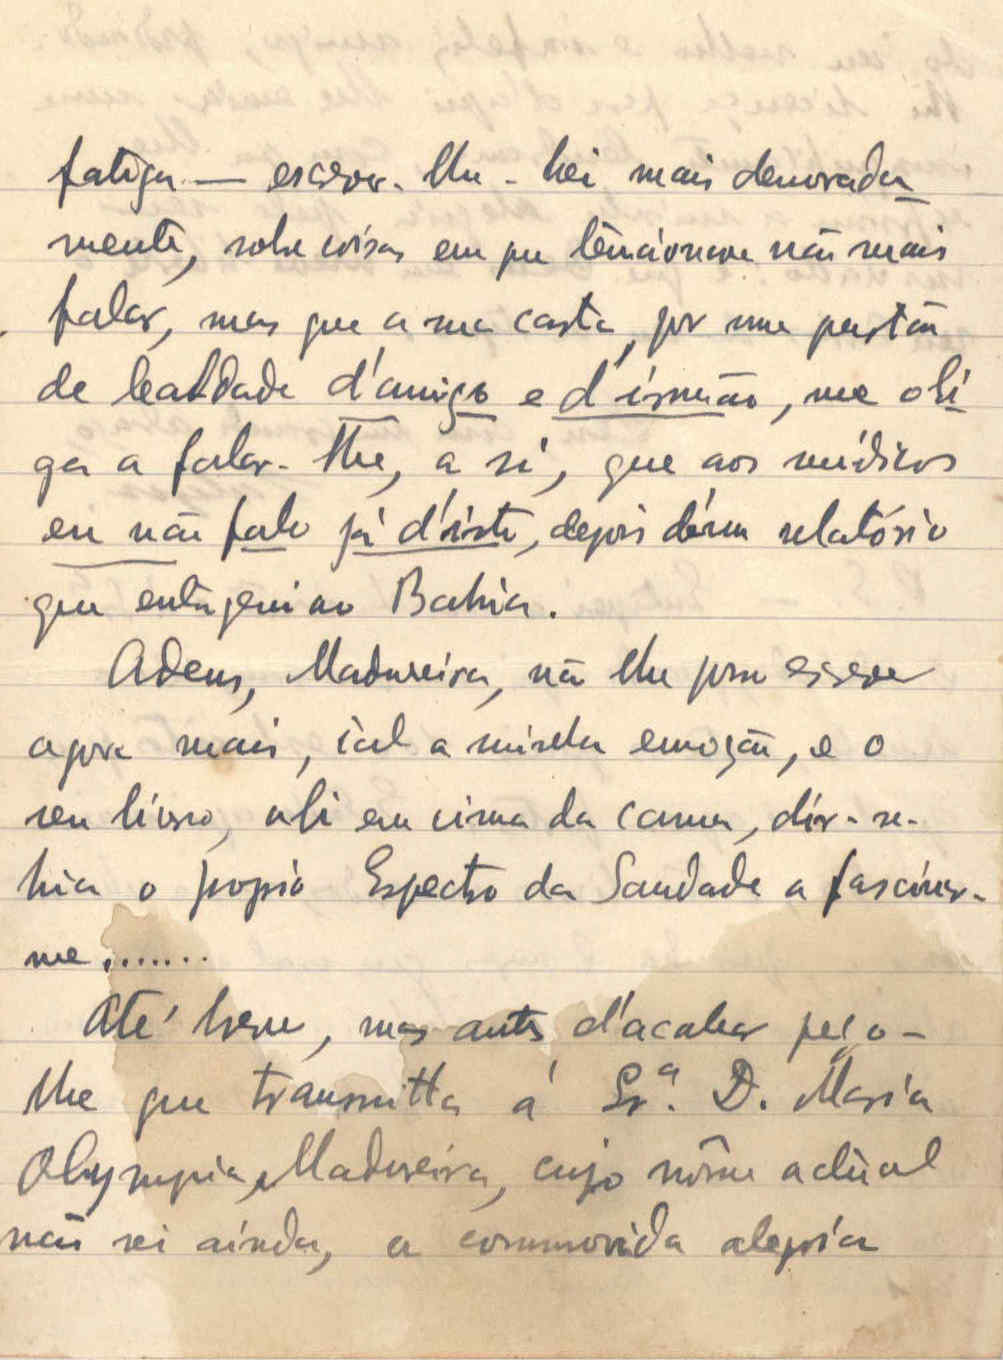 fatiga — escrever-lhe-hei mais demorada
mente, sobre coisas em que tencionava não mais
falar, mas que a sua carta, por uma questão
de lealdade d'amigo e d'irmão, me obri
ga a falar-lhe, a si, que aos médicos
eu não falo já d'isto, depois dum relatório
que entreguei ao Bahia.
Adeus, Madureira, não lhe posso escrever
agora mais, tal a minha emoção, e o
seu livro, ali em cima da cama, dir-se-
hia o proprio Espectro da Saudade a fascinar-
me.......
Até breve, mas antes d'acabar peço-
lhe que transmitta á Sr.ª D. Maria
Olympia Madureira, cujo nome actual
não sei ainda, a commovida alegria